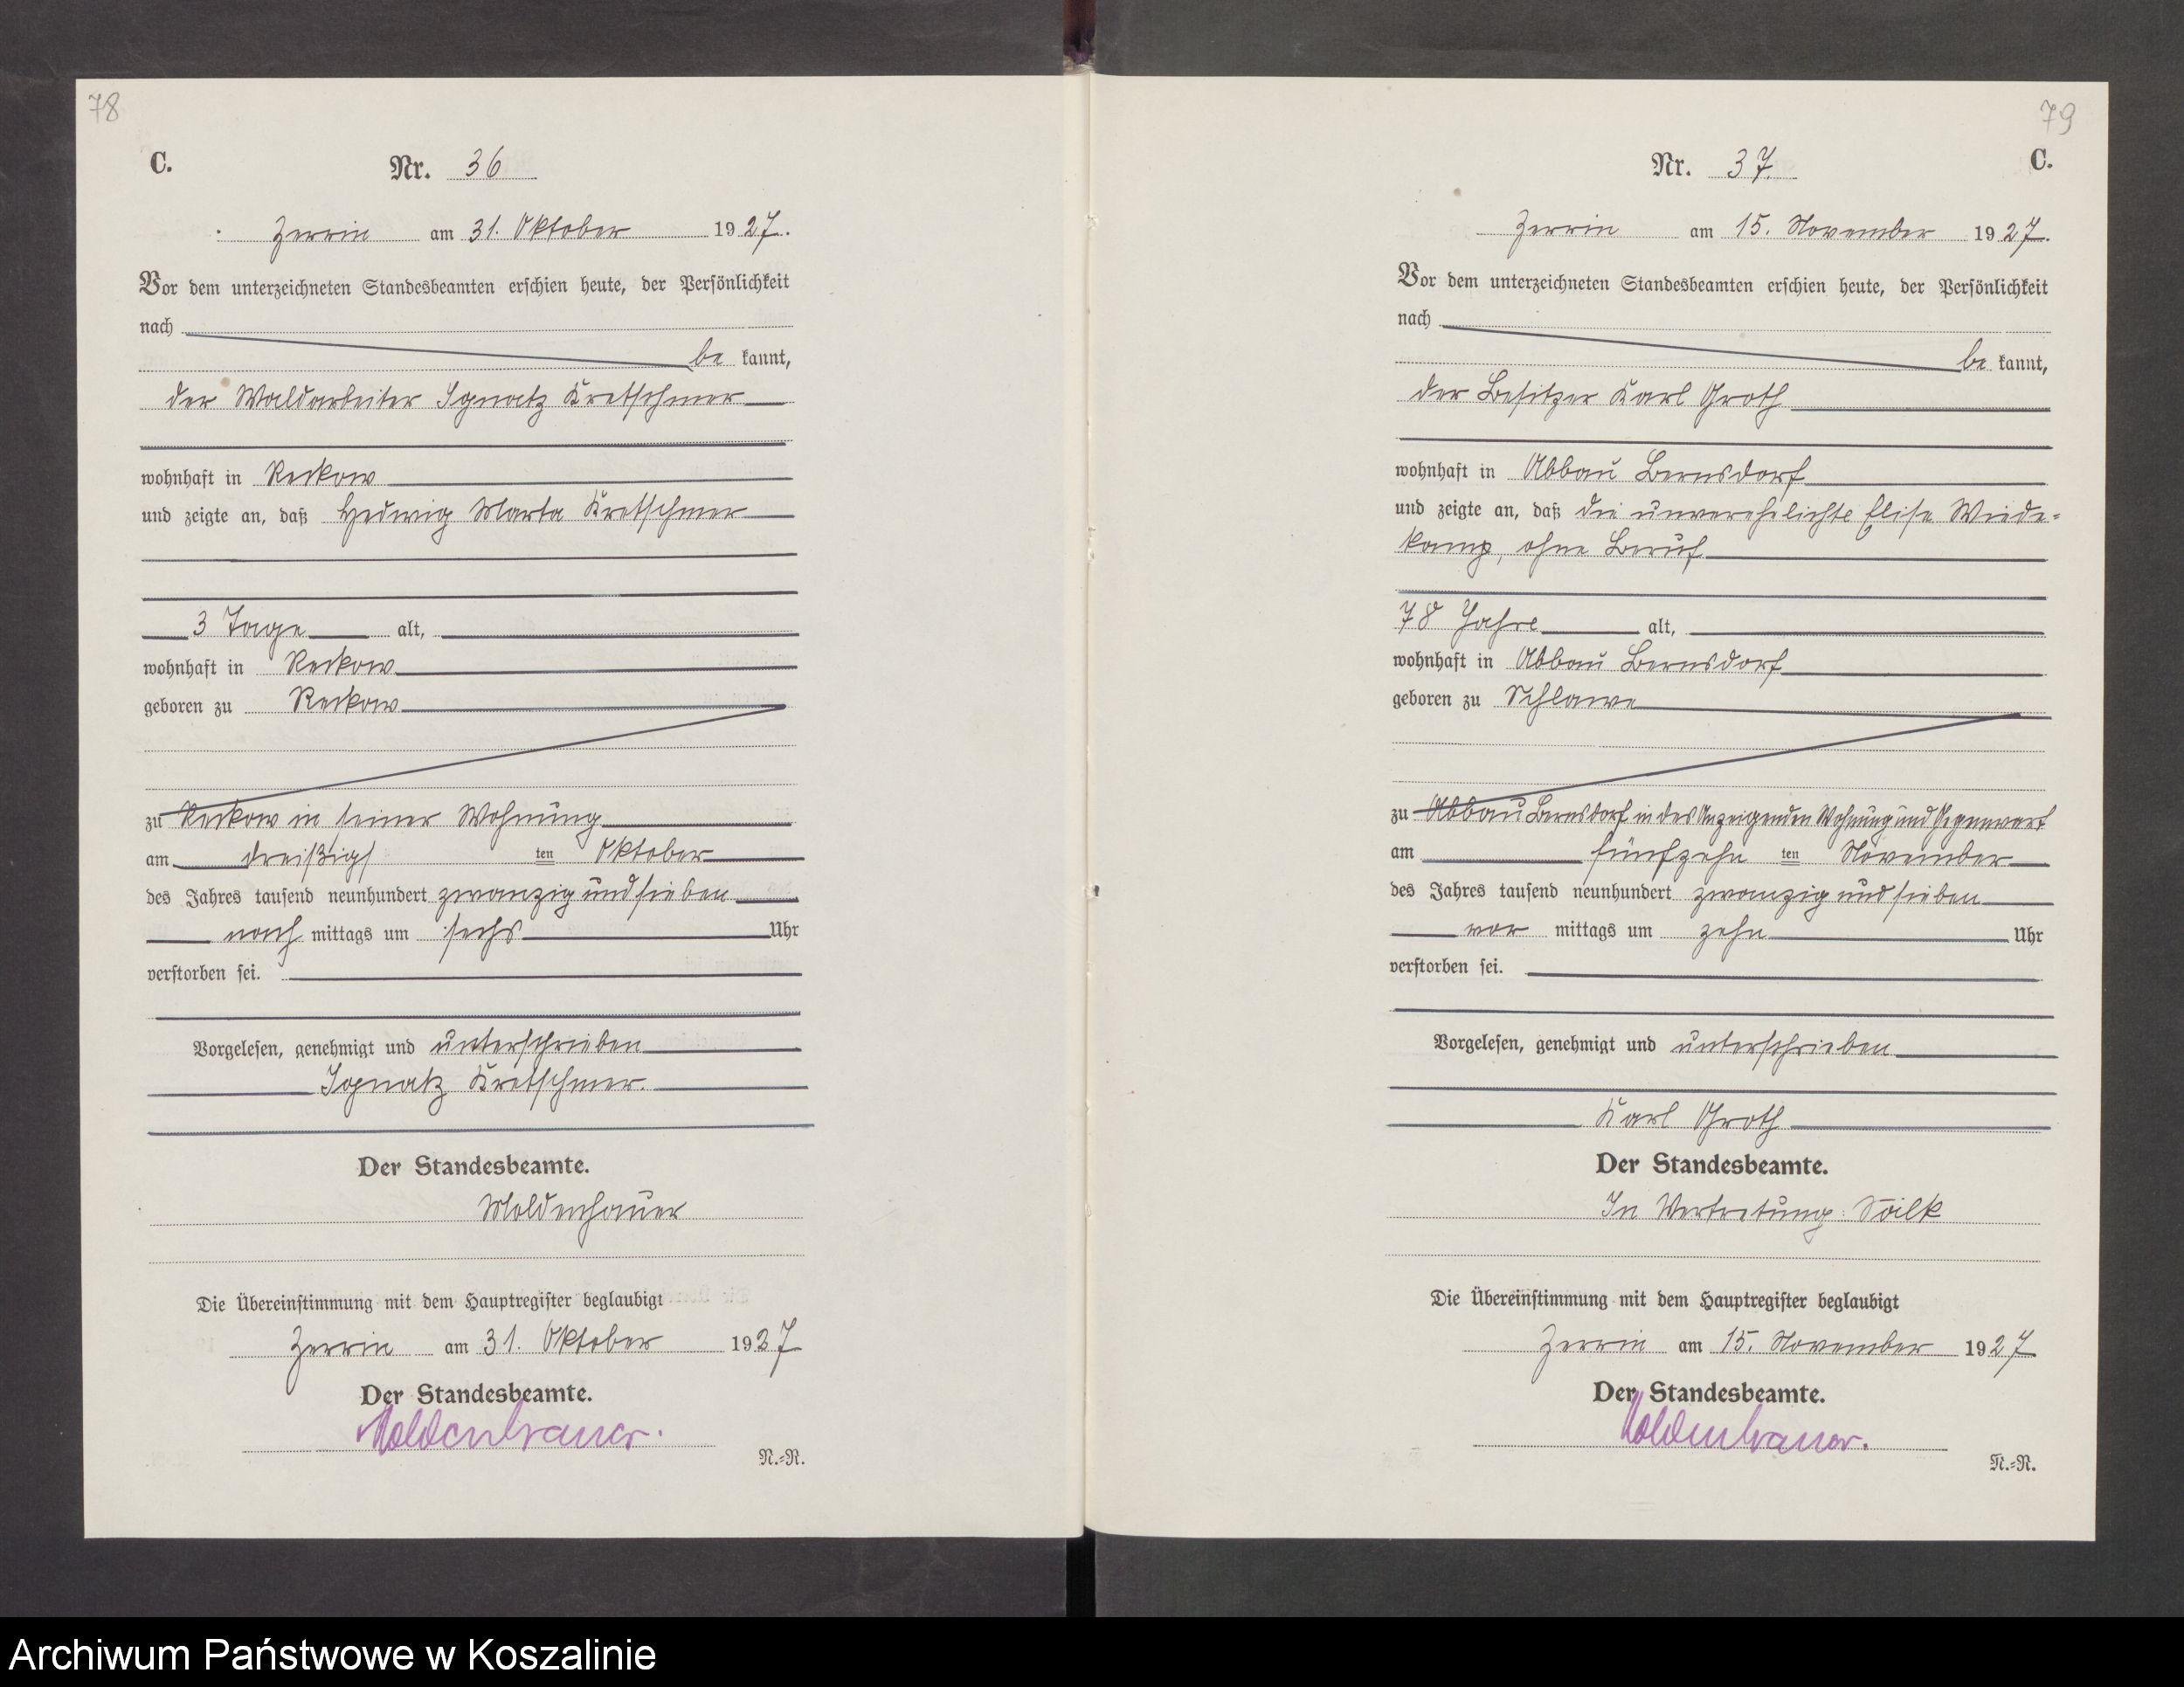 78
C.
Nr. 36
Zerrin am 31. Oktober 1927.
Vor dem unterzeichneten Standesbeamten erschien heute, der Persönlichkeit
nach
be kannt,
der Waldarbeiter Ignatz Kretschmer
wohnhaft in Reckow
und zeigte an, daß Hedwig Marta Kretschmer
3 Tage alt,
wohnhaft in Reckow
geboren zu Reckow
zu Reckow in seiner Wohnung
am dreißigs ten Oktober
des Jahres tausend neunhundert zwanzig und sieben
nach mittags um sechs Uhr
verstorben sei.
Vorgelesen, genehmigt und unterschrieben
Ignatz Kretschmer.
Der Standesbeamte.
Moldenhauer
Die Übereinstimmung mit dem Hauptregister beglaubigt
Zerrin am 31. Oktober 1927
Der Standesbeamte.
Moldenhauer.
N.=R.
79
Nr. 37.
C.
Zerrin am 15. November 1927.
Vor dem unterzeichneten Standesbeamten erschien heute, der Persönlichkeit
nach
be kannt,
der Besitzer Karl Groth
wohnhaft in Abbau Bernsdorf
und zeigte an, daß die unverehelichte Elise Wiede=
kamp, ohne Beruf
78 Jahre alt,
wohnhaft in Abbau Bernsdorf
geboren zu Schlawe
zu Abbau Bernsdorf in des Anzeigenden Wohnung und Gegenwart
am fünfzehn ten November
des Jahres tausend neunhundert zwanzig und sieben
vor mittags um zehn Uhr
verstorben sei.
Vorgelesen, genehmigt und unterschrieben
Karl Groth
Der Standesbeamte.
In Vertretung:
Die Übereinstimmung mit dem Hauptregister beglaubigt
Zerrin am 15. November 1927
Der Standesbeamte.
Moldenhauer.
N.=R.
Archiwum Państwowe w Koszalinie